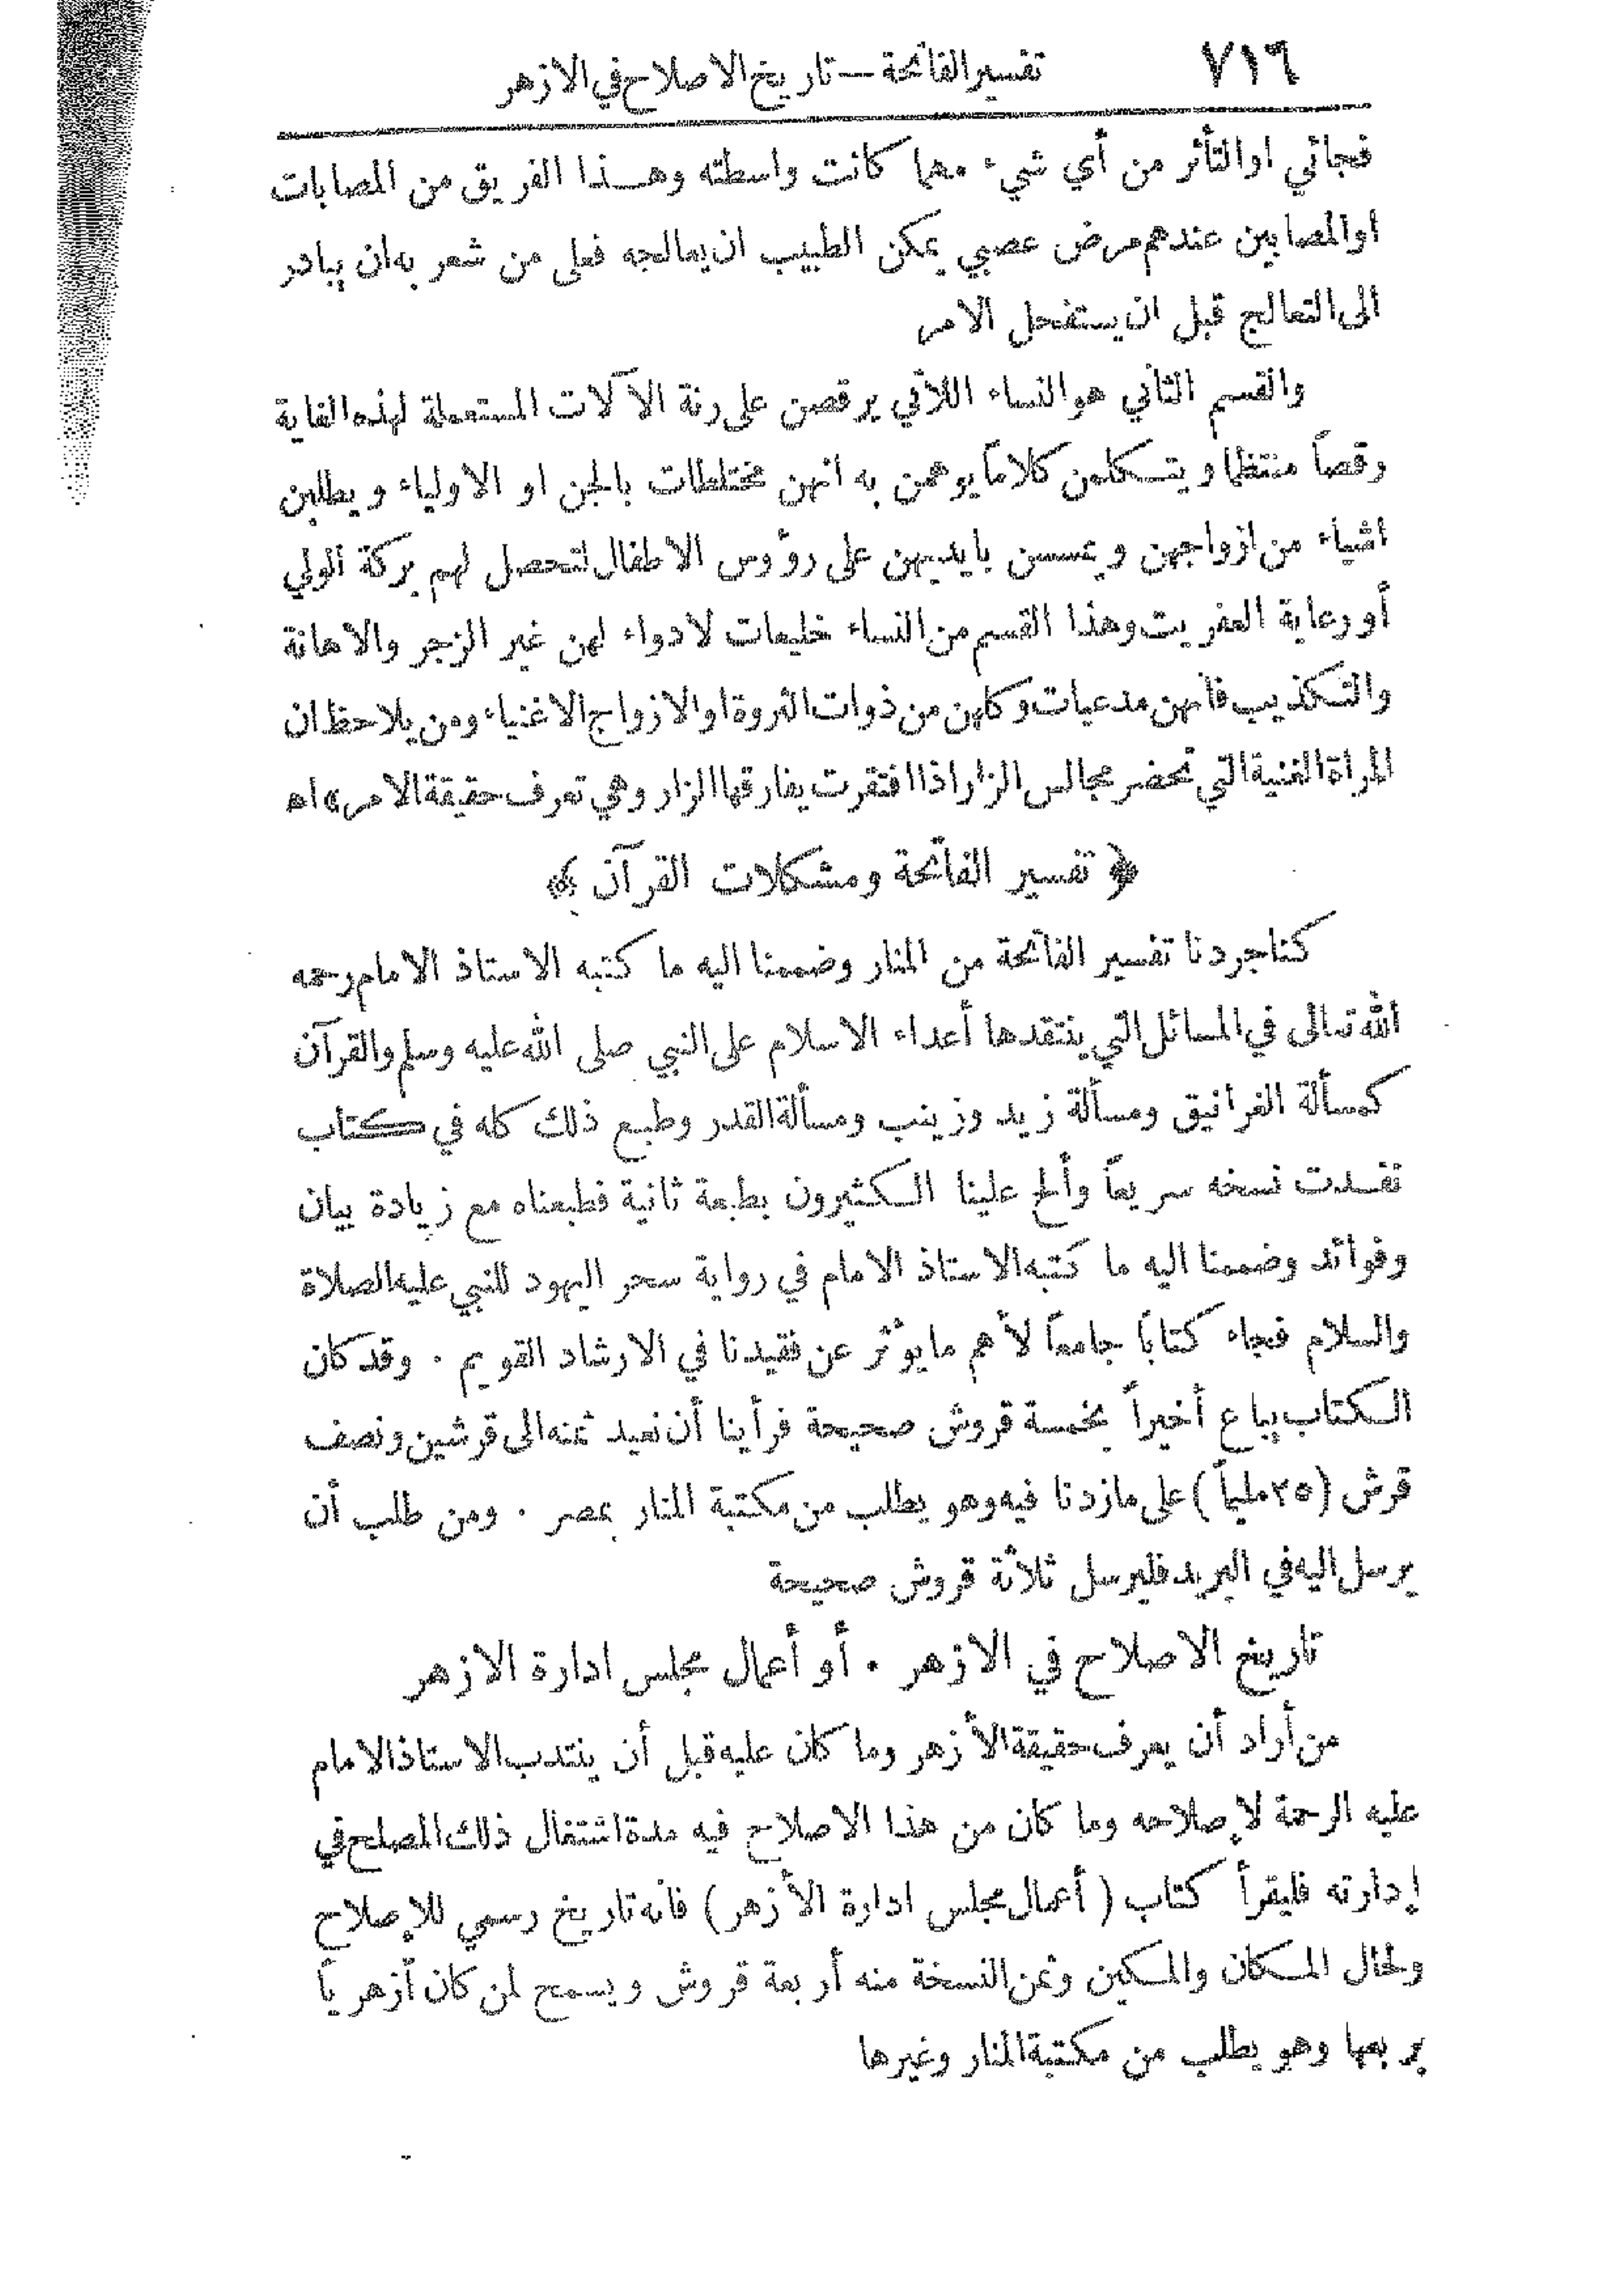 ٧١٦ تفسير الفاتحة — تاريخ الاصلاح في الازهر
فجائي او التأثر من أي شيء مهما كانت واسطته وهذا الفريق من المصابات
او المصابين عندهم مرض عصبي يمكن الطبيب ان يعالجه فعلى من شعر به ان يبادر
الى التعالج قبل ان يستفحل الامر
والقسم الثاني هو النساء اللاتي يرقصن على رنة الآلات المستعملة لهذه الغاية
رقصاً منتظما ويتكلمن كلاماً يوهمن به انهن مختلطات بالجن او الاولياء ويطلبن
اشياء من ازواجهن ويمسسن بايديهن على رؤوس الاطفال لتحصل لهم بركة الولي
أو رعاية العفريت وهذا القسم من النساء خليعات لا دواء لهن غير الزجر والاهانة
والتكذيب فانهن مدعيات وكلهن من ذوات الثروة او الازواج الاغنياء ومن يلاحظ ان
المراة الغنية التي تحضر مجالس الزار اذا افتقرت يفارقها الزار وهي تعرف حقيقة الامر» اه
﴿ تفسير الفاتحة ومشكلات القرآن ﴾
كنا جردنا تفسير الفاتحة من المنار وضممنا اليه ما كتبه الاستاذ الامام رحمه
الله تعالى في المسائل التي ينتقدها أعداء الاسلام على النبي صلى الله عليه وسلم والقرآن
كمسألة الغرانيق ومسألة زيد وزينب ومسألة القدر وطبع ذلك كله في كتاب
نفدت نسخه سريعاً وألح علينا الكثيرون بطبعة ثانية فطبعناه مع زيادة بيان
وفوائد وضممنا اليه ما كتبه الاستاذ الامام في رواية سحر اليهود للنبي عليه الصلاة
والسلام فجاء كتاباً جامعاً لأهم ما يؤثر عن فقيدنا في الارشاد القويم . وقد كان
الكتاب يباع أخيراً بخمسة قروش صحيحة فرأينا أن نعيد ثمنه الى قرشين ونصف
قرش (٢٥ مليماً) على ما زدنا فيه وهو يطلب من مكتبة المنار بمصر . ومن طلب أن
يرسل اليه في البريد فليرسل ثلاثة قروش صحيحة
تاريخ الاصلاح في الازهر . أو أعمال مجلس ادارة الازهر
من أراد أن يعرف حقيقة الأزهر وما كان عليه قبل أن ينتدب الاستاذ الامام
عليه الرحمة لإصلاحه وما كان من هذا الاصلاح فيه مدة اشتغال ذلك المصلح في
إدارته فليقرأ كتاب (أعمال مجلس ادارة الأزهر) فانه تاريخ رسمي للإصلاح
ولحال المكان والمكين وثمن النسخة منه أربعة قروش ويسمح لمن كان أزهرياً
بربعها وهو يطلب من مكتبة المنار وغيرها